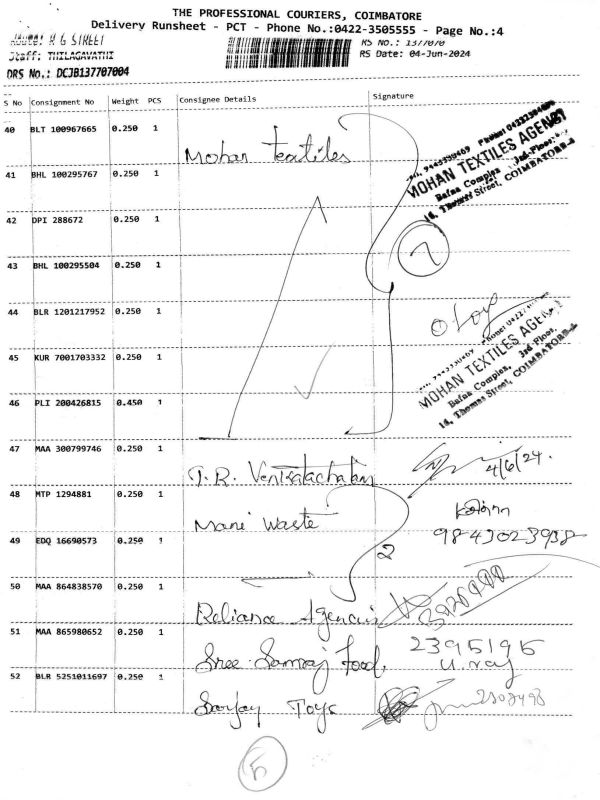 THE PROFESSIONAL COURIERS, COIMBATORE
Delivery Runsheet - PCT - Phone No.:0422-3505555 - Page No.:4
Route: R G STREET
RS No.: 1377070
Staff: THILAGAVATHI
RS Date: 04-Jun-2024
DRS No.: DCJB137707004
S No Consignment No Weight PCS Consignee Details Signature
40 BLT 100967665 0.250 1 Mohan Textiles
MOHAN TEXTILES AGENCY
Bafna Complex, 3rd Floor,
16, Thomas Street, COIMBATORE-1
41 BHL 100295767 0.250 1
42 DPI 288672 0.250 1
7
43 BHL 100295504 0.250 1
44 BLR 1201217952 0.250 1
MOHAN TEXTILES AGENCY
Bafna Complex, 3rd Floor,
16, Thomas Street, COIMBATORE-1
45 KUR 7001703332 0.250 1
46 PLI 200426815 0.450 1
47 MAA 300799746 0.250 1 T.R. Venkatachalam 4/6/24.
48 MTP 1294881 0.250 1 Mani Waste
49 EDQ 16690573 0.250 1 2 9843023938
50 MAA 864838570 0.250 1 Reliance Agencies
51 MAA 865980652 0.250 1 Sree Samraj Food. 2395195
U. raj
52 BLR 5251011697 0.250 1 Sanjay Toys
5